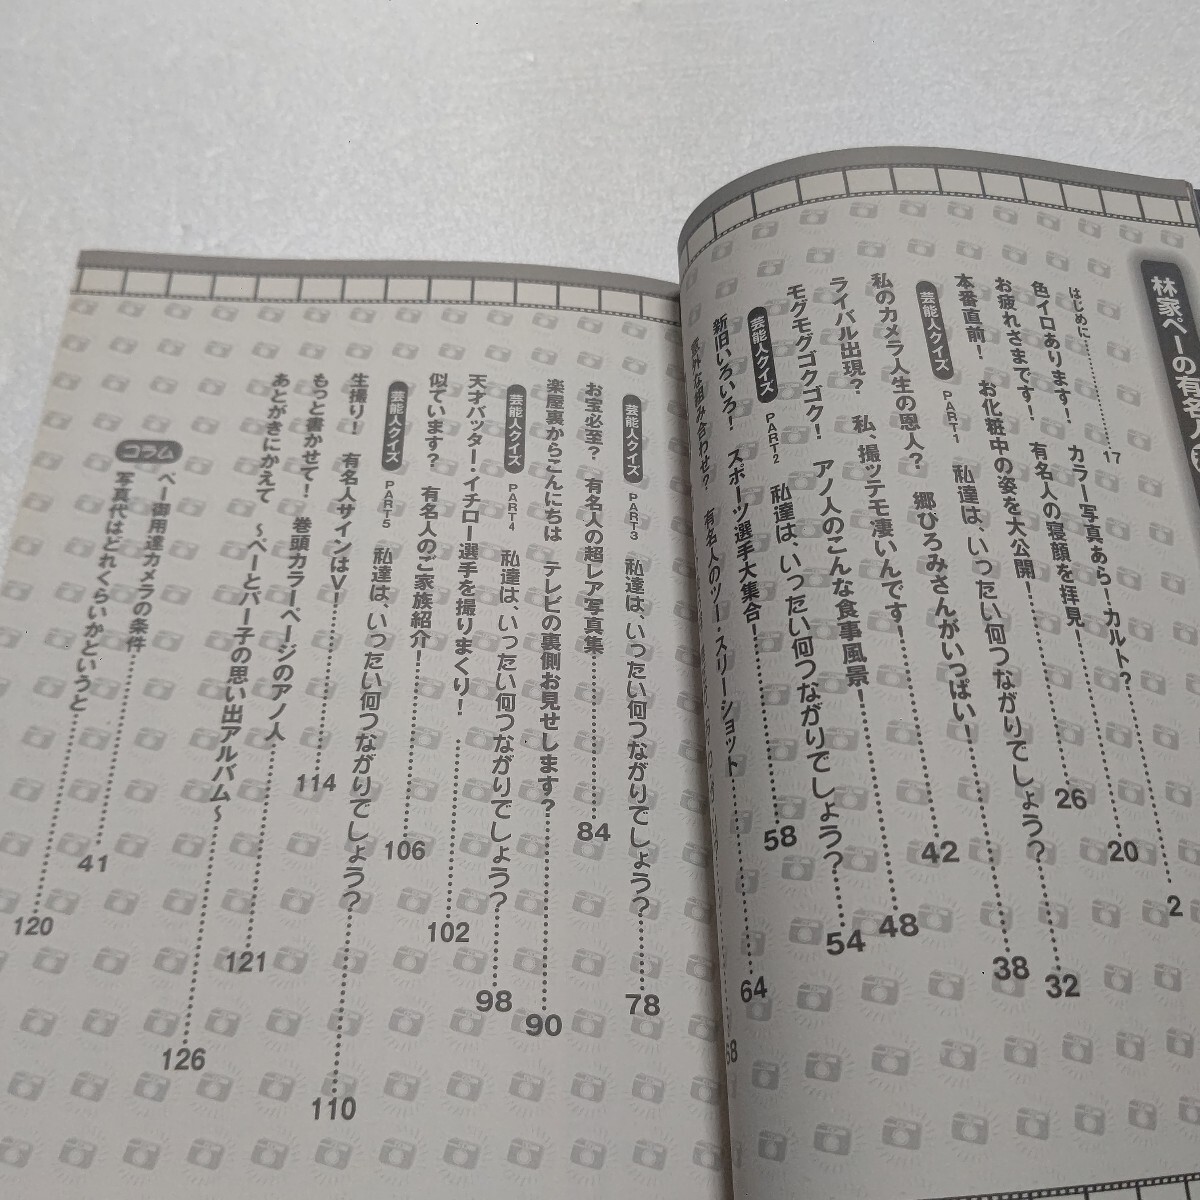 林家ペーの有名人
はじめに……………17
色イロあります! カラー写真あら!カルト?……………2
お疲れさまです! 有名人の寝顔を拝見!……………20
本番直前! お化粧中の姿を大公開!……………26
芸能人クイズ PART1 私達は、いったい何つながりでしょう?……………32
私のカメラ人生の恩人? 郷ひろみさんがいっぱい!……………38
ライバル出現? 私、撮ッテモ凄いんです!……………42
モグモグゴクゴク! アノ人のこんな食事風景!……………48
芸能人クイズ PART2 私達は、いったい何つながりでしょう?……………54
新旧いろいろ! スポーツ選手大集合!……………58
意外な組み合わせ? 有名人のツー・スリーショット……………64
68
芸能人クイズ PART3 私達は、いったい何つながりでしょう?……………78
お宝必至? 有名人の超レア写真集……………84
楽屋裏からこんにちは テレビの裏側お見せします?……………90
芸能人クイズ PART4 私達は、いったい何つながりでしょう?……………98
天才バッター・イチロー選手を撮りまくり!……………102
似ています? 有名人のご家族紹介!……………106
芸能人クイズ PART5 私達は、いったい何つながりでしょう?……………110
生撮り! 有名人サインはV!……………114
もっと書かせて! 巻頭カラーページのアノ人……………121
あとがきにかえて 〜ペーとパー子の思い出アルバム〜……………126
コラム
ペー御用達カメラの条件……………41
写真代はどれくらいかというと……………120